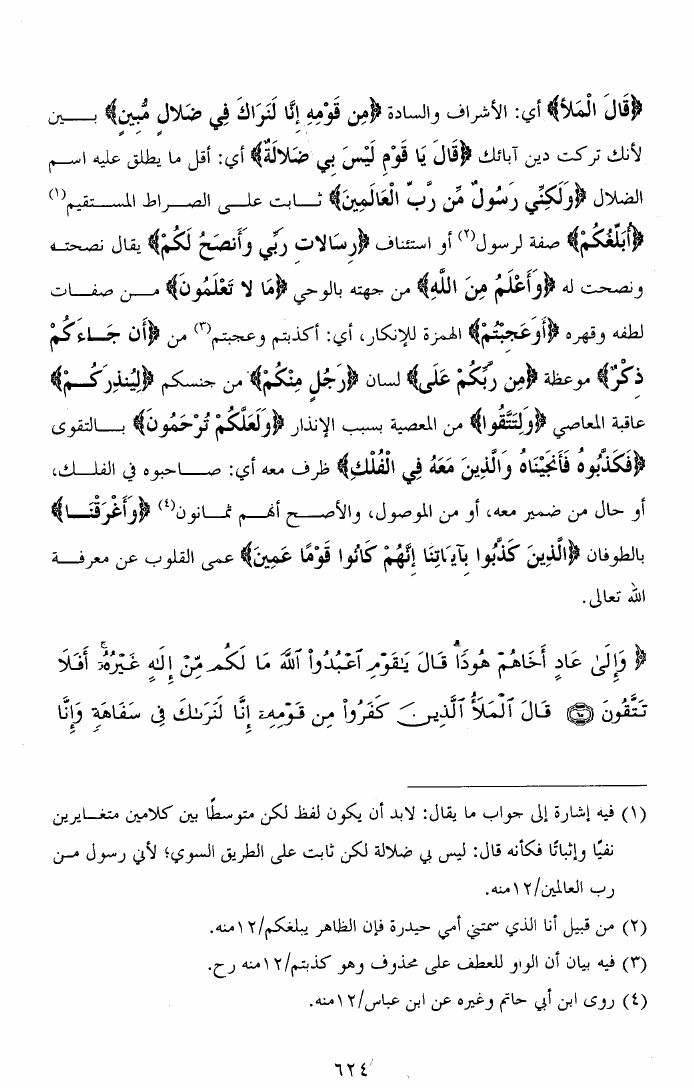 ﴿قَالَ الْمَلأ﴾ أي: الأشراف والسادة ﴿مِن قَوْمِهِ إِنَّا لَنَرَاكَ فِي ضَلالٍ مُّبِينٍ﴾ بـــين
لأنك تركت دين آبائك ﴿قَالَ يَا قَوْمِ لَيْسَ بِي ضَلالَةٌ﴾ أي: أقل ما يطلق عليه اسـم
الضلال ﴿وَلَكِنِّي رَسُولٌ مِّن رَّبِّ الْعَالَمِينَ﴾ ثـابت علـى الصـراط المـستقيم(١)
﴿أُبَلِّغُكُمْ﴾ صفة لرسول(٢) أو استئناف ﴿رِسَالاتِ رَبِّي وَأَنصَحُ لَكُمْ﴾ يقال نصحتـه
ونصحت له ﴿وَأَعْلَمُ مِنَ اللَّهِ﴾ من جهته بالوحي ﴿مَا لا تَعْلَمُونَ﴾ مـن صفـات
لطفه وقهره ﴿أَوَعَجِبْتُمْ﴾ الهمزة للإنكار، أي: أكذبتم وعجبتم(٣) من ﴿أَن جَـاءَكُمْ
ذِكْرٌ﴾ موعظة ﴿مِن رَبِّكُمْ عَلَى﴾ لسان ﴿رَجُلٍ مِنْكُمْ﴾ من جنسكم ﴿لِيُنذِرَكُـمْ﴾
عاقبة المعاصي ﴿وَلِتَتَّقُوا﴾ من المعصية بسبب الإنذار ﴿وَلَعَلَّكُمْ تُرْحَمُونَ﴾ بـالتقوى
﴿فَكَذَّبُوهُ فَأَنجَيْنَاهُ وَالَّذِينَ مَعَهُ فِي الْفُلْكِ﴾ ظرف معه أي: صـاحبوه في الفلـك،
أو حال من ضمير معه، أو من الموصول، والأصـح أنهـم ثمـانون(٤) ﴿وَأَغْرَقْنَـا﴾
بالطوفان ﴿الَّذِينَ كَذَّبُوا بِآيَاتِنَا إِنَّهُمْ كَانُوا قَوْمًا عَمِينَ﴾ عمى القلوب عن معرفـة
الله تعالى.
﴿ وَإِلَىٰ عَادٍ أَخَاهُمْ هُودًا ۗ قَالَ يَـٰقَوْمِ ٱعْبُدُوا۟ ٱللَّهَ مَا لَكُم مِّنْ إِلَـٰهٍ غَيْرُهُۥٓ ۚ أَفَلَا
تَتَّقُونَ ٦٥ قَالَ ٱلْمَلَأُ ٱلَّذِينَ كَفَرُوا۟ مِن قَوْمِهِۦٓ إِنَّا لَنَرَىٰكَ فِى سَفَاهَةٍ وَإِنَّا
(١) فيه إشارة إلى جواب ما يقال: لابد أن يكون لفظ لكن متوسطًا بين كلامين متغـايرين
نفيًا وإثباتًا فكأنه قال: ليس بي ضلالة لكن ثابت على الطريق السوي؛ لأني رسول مـن
رب العالمين/١٢منه.
(٢) من قبيل أنا الذي سمتني أمي حيدرة فإن الظاهر يبلغكم/١٢منه.
(٣) فيه بيان أن الواو للعطف على محذوف وهو كذبتم/١٢منه رح.
(٤) روى ابن أبي حاتم وغيره عن ابن عباس/١٢منه.
٦٢٤